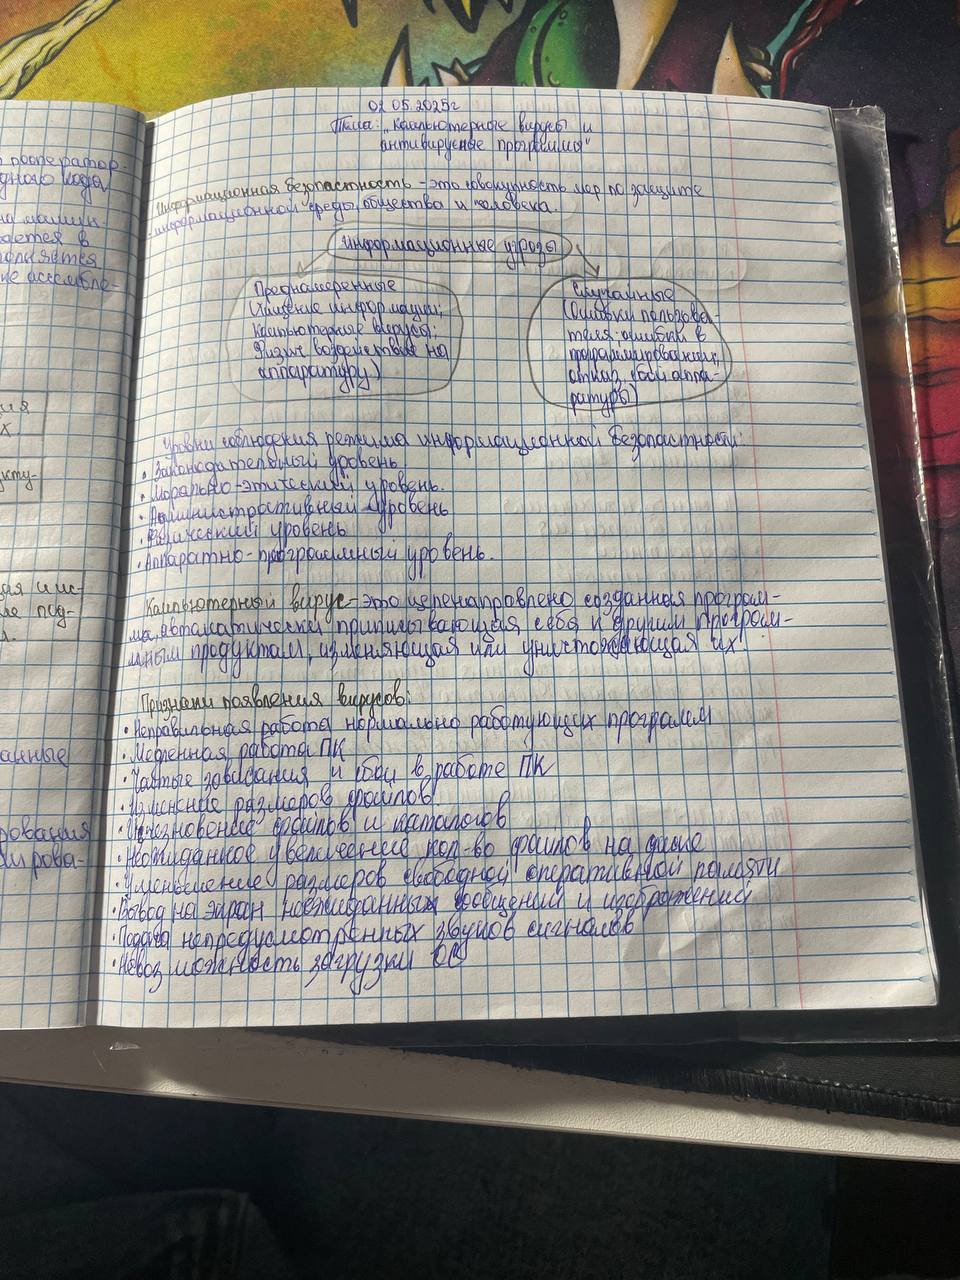 02.05.2025г
Тема: „Компьютерные вирусы и
антивирусные программы"
Информационная безопастность - это совокупность мер по защите
информационной среды общества и человека.
Информационные угрозы
Преднамеренные
(Хищение информации;
Компьютерные вирусы;
Физич воздействие на
аппаратуру)
Случайные
(Ошибки пользова-
теля; ошибки в
программировании,
отказ, сбой аппа-
ратуры)
Уровни соблюдения режима информационной безопастности:
• Законодательный уровень.
• Морально-этический уровень.
• Административный уровень
• Физический уровень
• Аппаратно-программный уровень.
Компьютерный вирус - это целенаправлено созданная програм-
ма, автоматически приписывающая себя к другим програм-
мным продуктам, изменяющая или уничтожающая их.
Признаки появления вирусов:
• Неправильная работа нормально работующих программ
• Медленная работа ПК
• Частые зависания и сбои в работе ПК
• Изменение размеров файлов
• Исчезновение файлов и каталогов
• Неожиданное увеличение кол-во файлов на диске
• Уменьшение размеров свободной оперативной памяти
• Вывод на экран неожиданных сообщений и изображений
• Подача непредусмотренных звуков сигналов
• Невозможность загрузки ОС
оператор-
кода
на машин.
дается в
полняется
ие ассембле-
ия
х
кту-
ая и ис-
ые под-
анные
рования